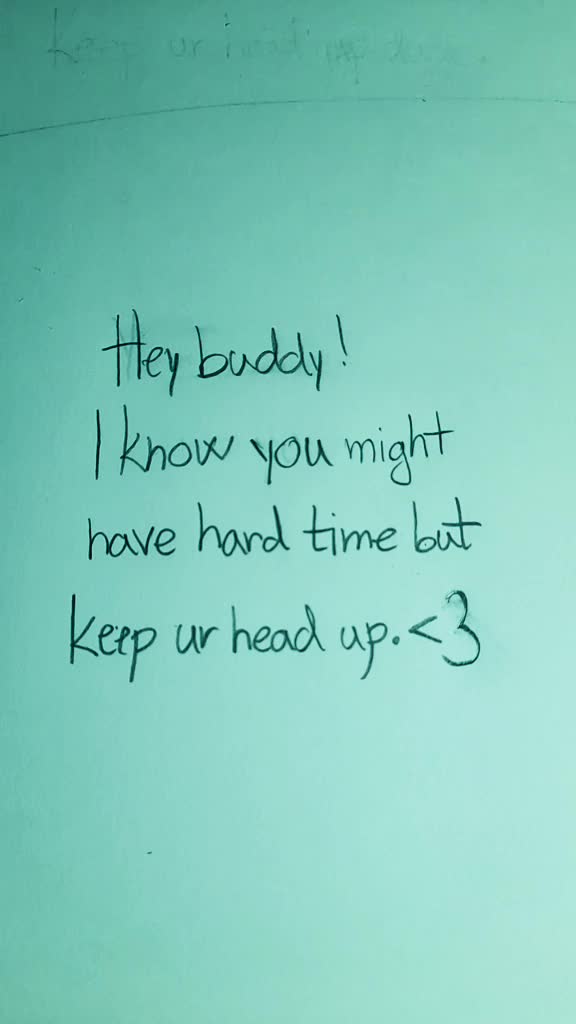 Keep ur head up
Hey buddy!
I know you might
have hard time but
keep ur head up. <3